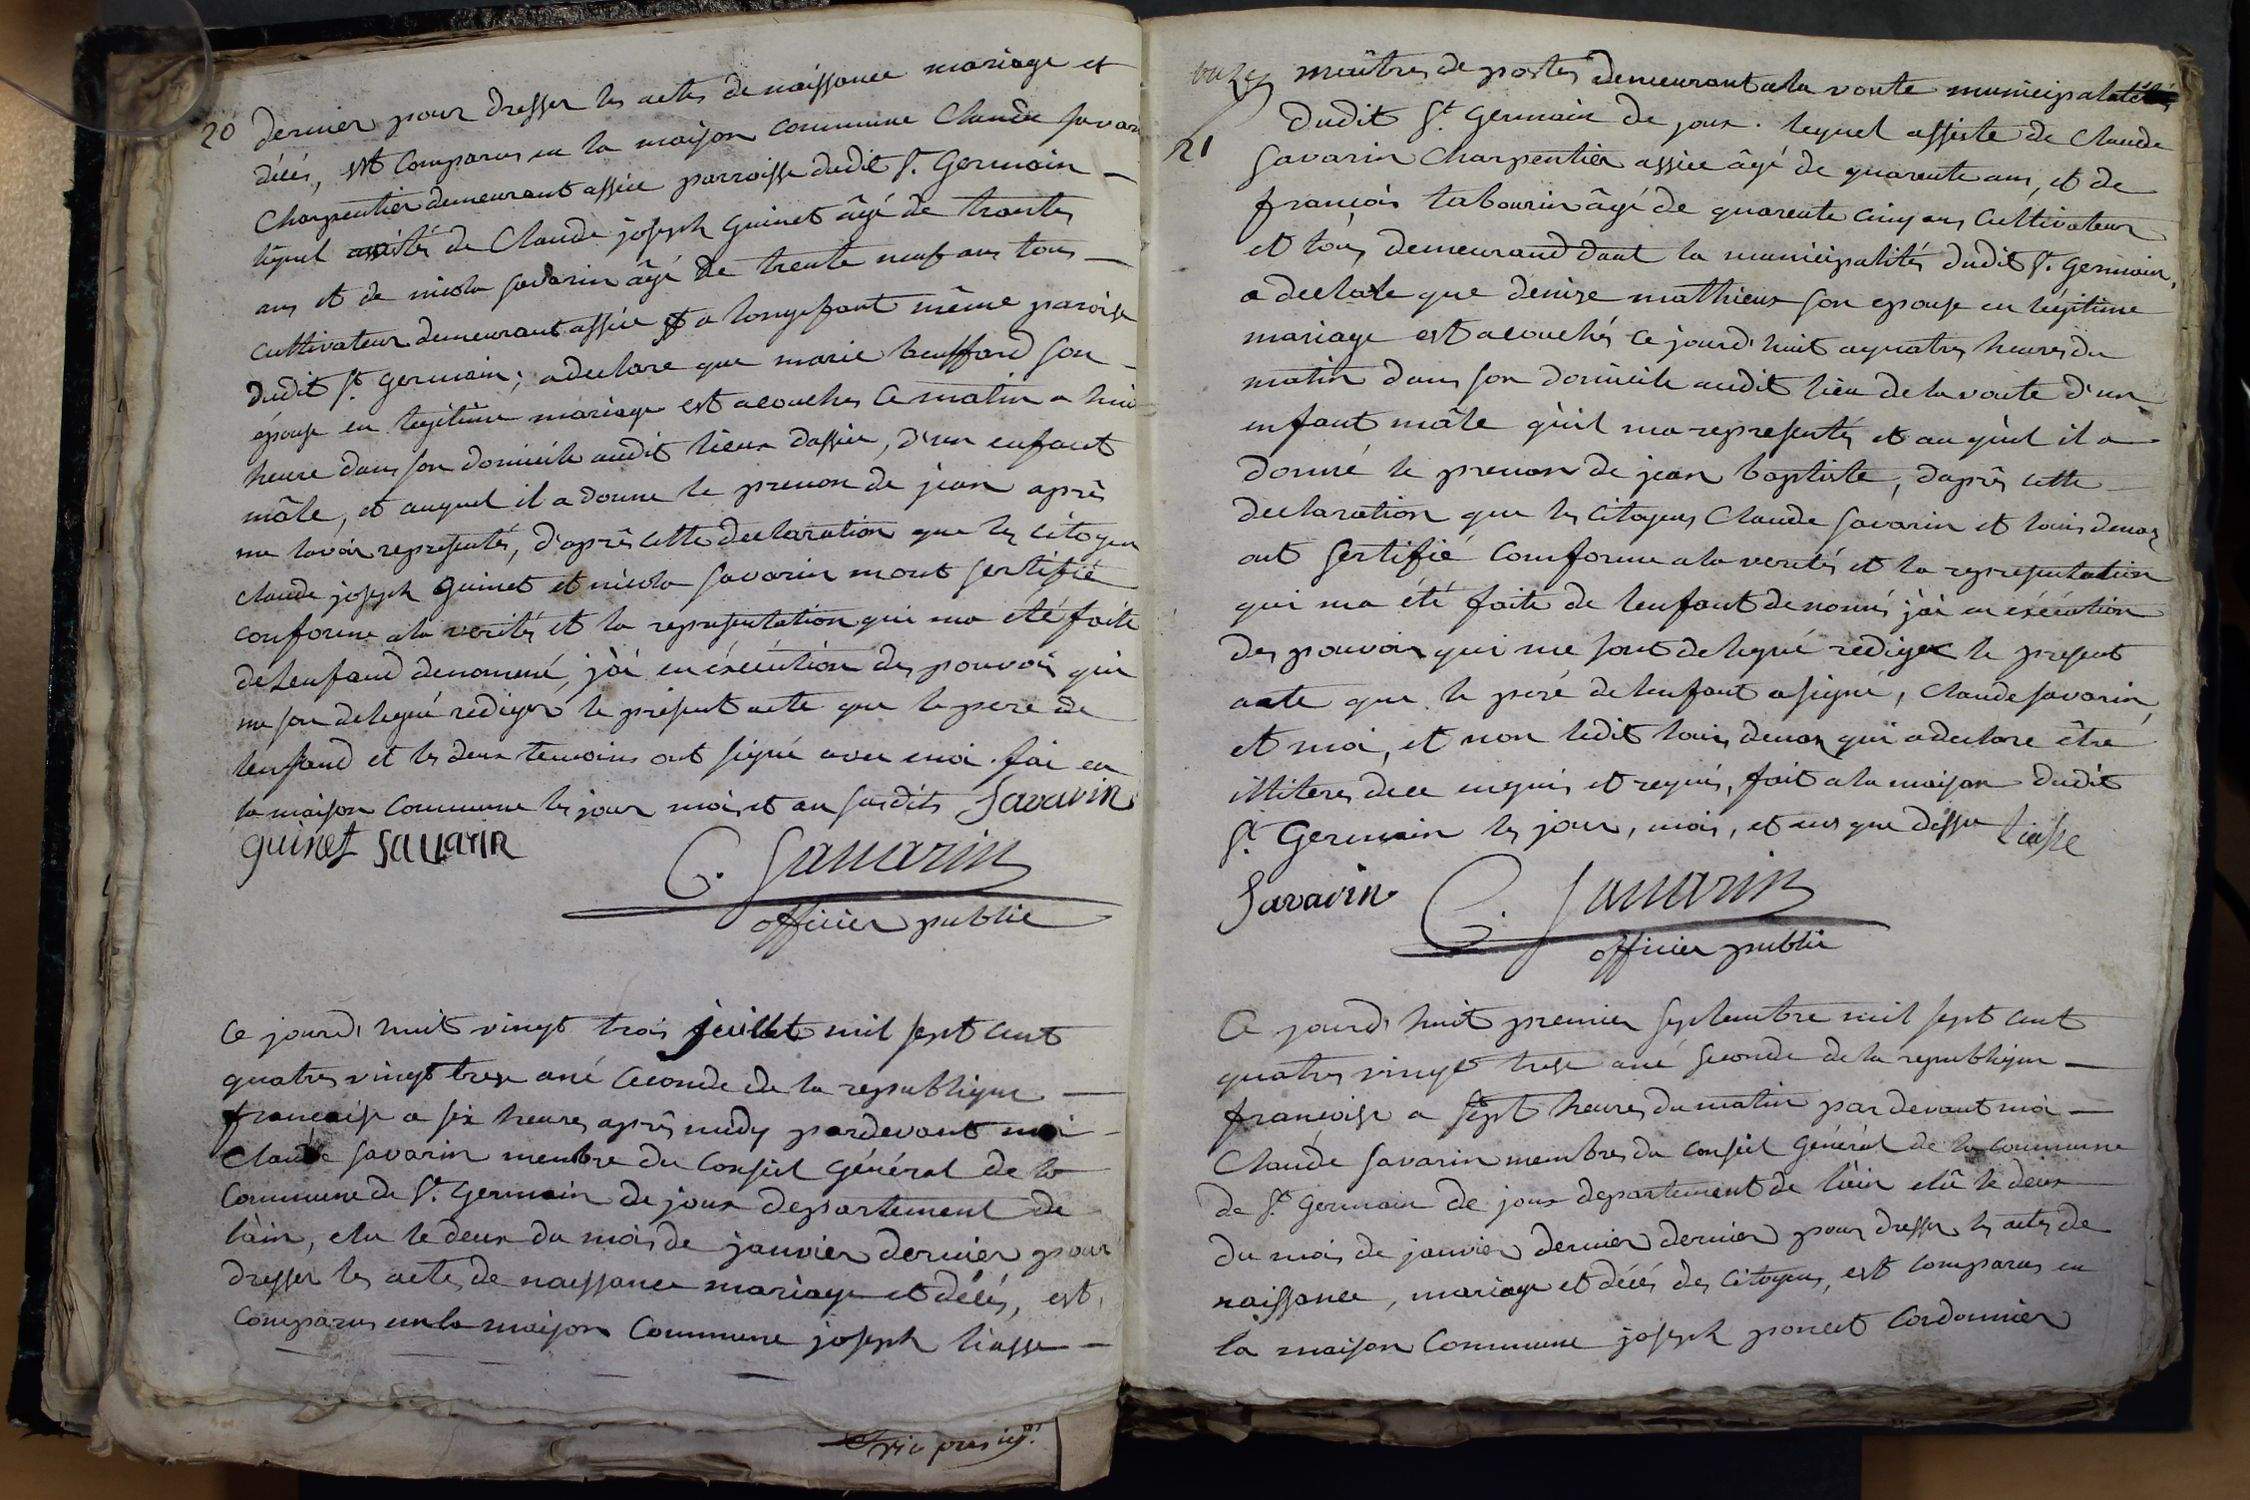 20
dernier pour dresser les actes de naissance mariage et
décés, est Comparus en la maison commune Claude Savarin
Charpentier demeurant assiée parroisse dudit St. Germain —
lequel assistés de Claude joseph Guinet âgé de trante
ans et de nicola Savarin âgé de trente neuf ans tous —
cultivateur demeurant assiée et a longefant même paroisse
dudit St. Germain ; adeclare que marie beuffard son —
épouse en legitime mariage est acouchés Ce matin a huit
heure dans son domicile audit lieux dassiée, d'un enfant
mâle, et auquel il a donne le prenon de jean après
me lavoir representés, d'après cette declaration que les Citoyen
claude joseph Guinet et nicola Savarin mont sertifié
conforme ala verités et la representation qui ma eté faite
delenfand denommé, j'ài en éxécution des pouvois qui
me son delegué rediger le présent acte que le pere de
lenfand et les deux temoins ont signé avec moi . fai en
la maison Commune les jour mois et an susdits Savarin
guinet Savarin
C. Savarin
officier public
Ce jourd'huit vingt trois juillet mil sept cent
quatres vingt treze ané Ceconde de la republique —
francaise a six heures après midy pardevant moi —
Claude Savarin membre du Conseil Général de la
Commune de St. Germain de joux departement de
l'àin, elu le deux du mois de janvier dernier pour
dresser les actes de naissance mariage et décés, est
Comparus en la maison Commune joseph liasse —
21
maîtres de postes demeurant ala voute municipalité
dudit St. Germain de joux . lequel assiste de Claude
Savarin Charpentier assiée âgé de quarente ans, et de
françois tabourin âgé de quarente cinq ans Cultivateur
et tous demeurand dant la municipalités dudit St. Germain,
a declare que denise mathieux son epouse en legitime
mariage est acouchés ce jourd'huit aquatres heures du
matin dans son domicile audit lieu de la voute d'un
enfant mâle qùil ma representés et au qùel il a —
donné le prenon de jean baptiste, daprès cette —
declaration que les Citoyens Claude Savarin et louis denoz
ont sertifié comforme ala verités et la representation
qui ma été faite de lenfant denomés j'ài en éxécution
des pouvoir qui me sont delegué rediger le present
acte que le peré delenfant asigné, Claude Savarin
et moi, et non ledit louis denoz qui adeclare être
illiteres dece enquis et requis, fait ala maison dudit
St. Germain les jour, mois, et ans que dessu liasse
Savarin
C. Savarin
officier public
Ce jourd'huit premier septembre mil sept cent
quatres vingt treze ané seconde de la republique —
françoise a sept heures du matin pardevant moi —
Claude Savarin membres du conseil Général de la commune
de St. Germain de joux departement de l'àin elû le deux
du mois de janvier dernier dernier pour dresser les actes de
naissance, mariage et décés des Citoyens, est Comparus en
la maison Commune joseph poncet Cordonnier